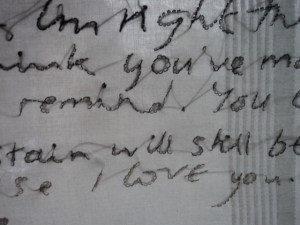 right th
think you've ma
remind. You
stain will still be
se I love you.